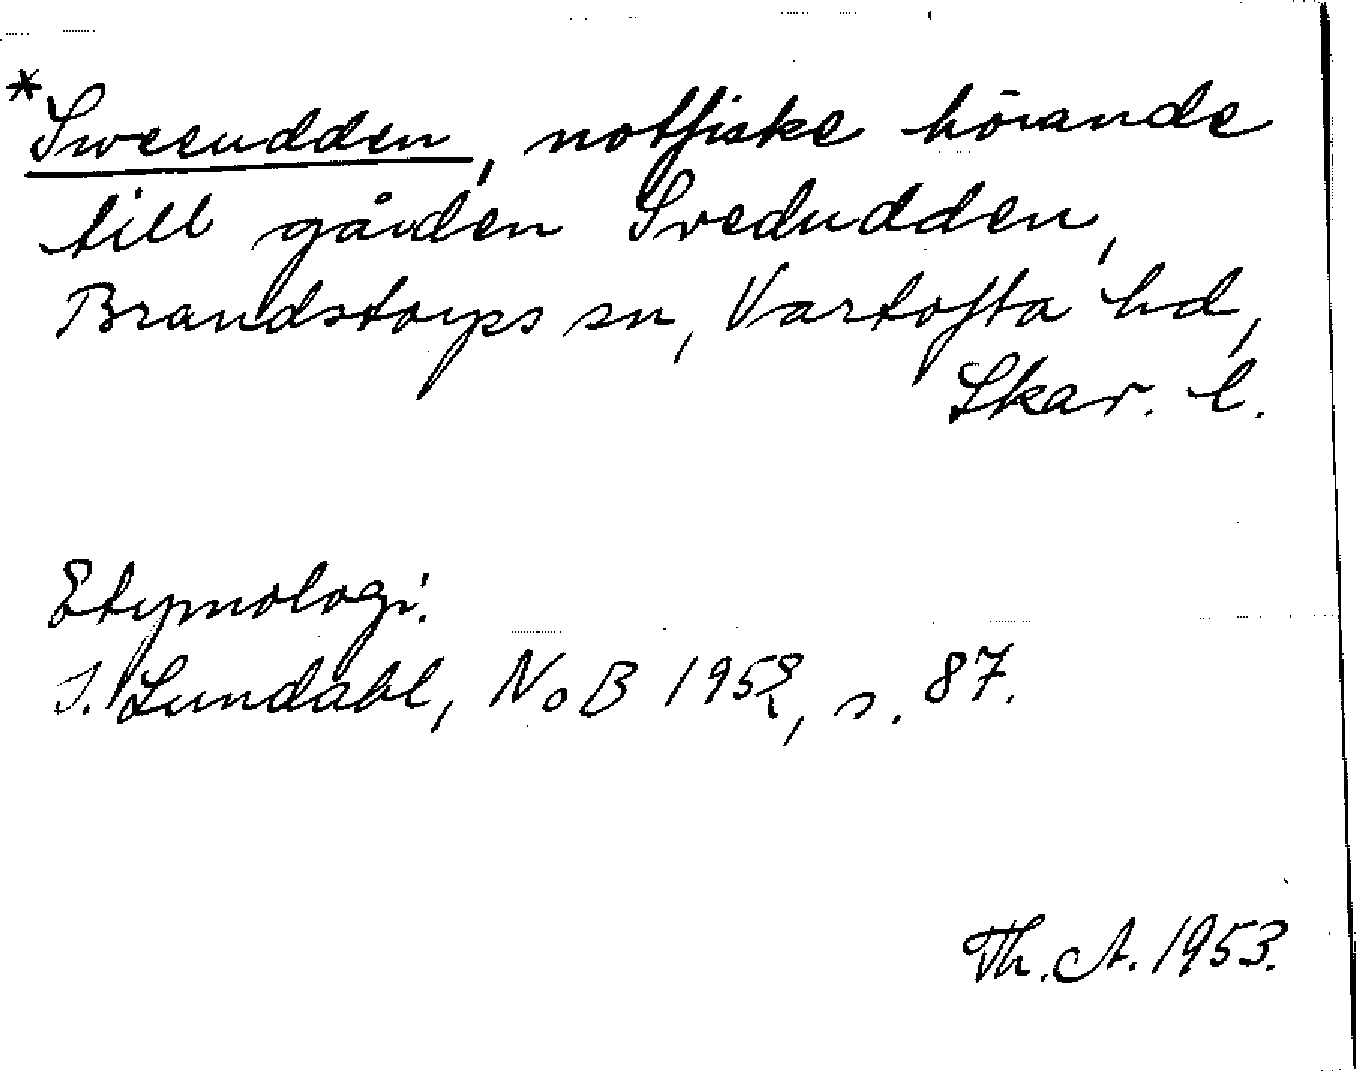 *Sweeudden, notfiske hörande
till gården Svedudden,
Brandstorps sn, Vartofta hd,
Skar. l.
Etymologi.
I. Lundahl, NoB 1952, s. 87.
Th. A. 1953.